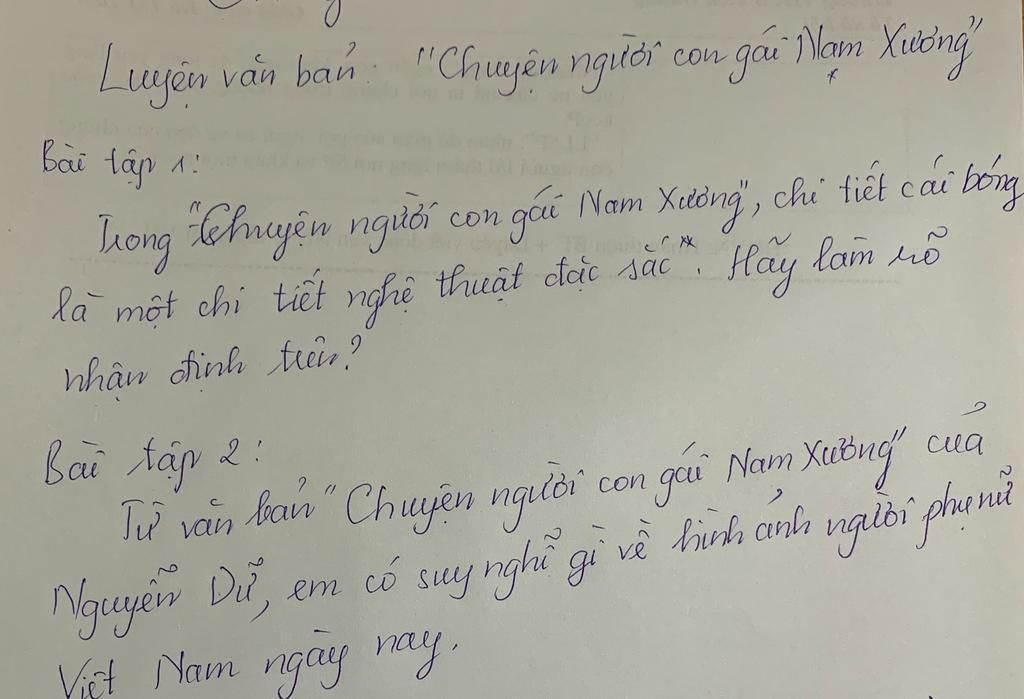 Luyện văn bản: "Chuyện người con gái Nam Xương"
Bài tập 1:
Trong "Chuyện người con gái Nam Xương", chi tiết cái bóng
là một chi tiết nghệ thuật đặc sắc. Hãy làm rõ
nhận định trên?
Bài tập 2:
Từ văn bản "Chuyện người con gái Nam Xương" của
Nguyễn Dữ, em có suy nghĩ gì về hình ảnh người phụ nữ
Việt Nam ngày nay.